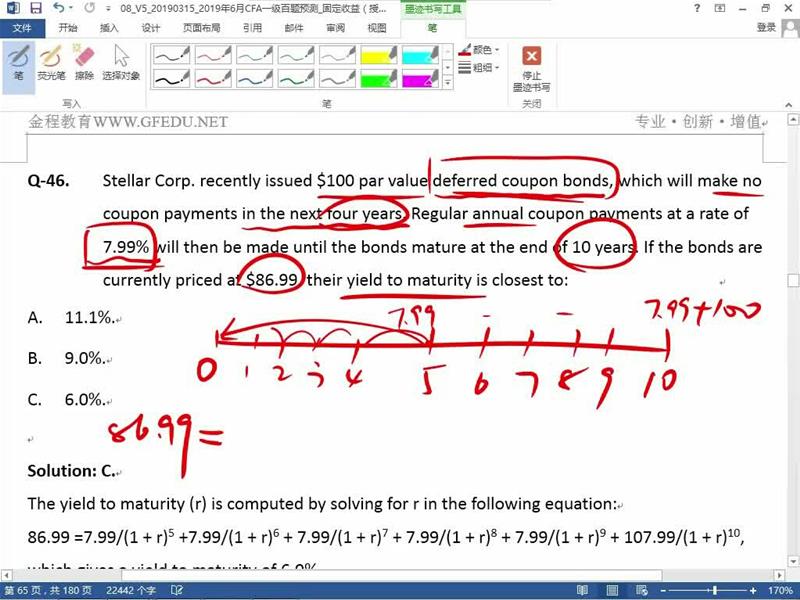 08_V5_20190315_2019年6月CFA一级百题预测_固定收益（授...
墨迹书写工具
登录
文件 开始 插入 设计 页面布局 引用 邮件 审阅 视图 笔
笔 荧光笔 擦除 选择对象
颜色
粗细
停止
墨迹书写
写入 笔 关闭
金程教育WWW.GFEDU.NET 专业·创新·增值
Q-46. Stellar Corp. recently issued $100 par value deferred coupon bonds, which will make no
coupon payments in the next four years. Regular annual coupon payments at a rate of
7.99% will then be made until the bonds mature at the end of 10 years. If the bonds are
currently priced at $86.99, their yield to maturity is closest to:
A. 11.1%.
7.99 7.99+100
B. 9.0%.
0 1 2 3 4 5 6 7 8 9 10
C. 6.0%.
86.99=
Solution: C.
The yield to maturity (r) is computed by solving for r in the following equation:
86.99 =7.99/(1 + r)⁵ +7.99/(1 + r)⁶ + 7.99/(1 + r)⁷ + 7.99/(1 + r)⁸ + 7.99/(1 + r)⁹ + 107.99/(1 + r)¹⁰,
which gives a yield to maturity of 6.0%
第 65 页，共 180 页 22442 个字 170%